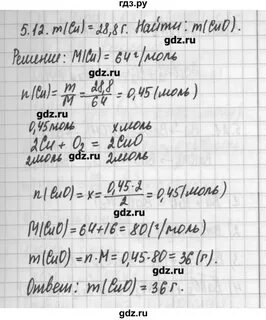 гдз.ру
5.12. m(Cu)=28,8 г. Найти: m(CuO).
Решение: M(Cu)=64 г/моль
n(Cu)=m/M=28,8/64=0,45(моль)
0,45моль xмоль
2Cu + O₂ = 2CuO
2моль 2моль
n(CuO)=x=0,45·2/2=0,45(моль)
M(CuO)=64+16=80(г/моль)
m(CuO)=n·M=0,45·80=36(г).
Ответ: m(CuO)=36г.
gdz.ru
gdz.ru
gdz.ru
gdz.ru
gdz.ru
gdz.ru